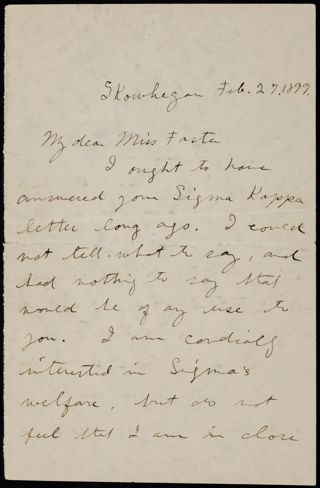 Skowhegan Feb. 27, 1897.
My dear Miss Foster
I ought to have
answered your Sigma Kappa
letter long ago. I could
not tell what to say, and
had nothing to say that
would be of any use to
you. I am cordially
interested in Sigma's
welfare, but do not
feel that I am in close